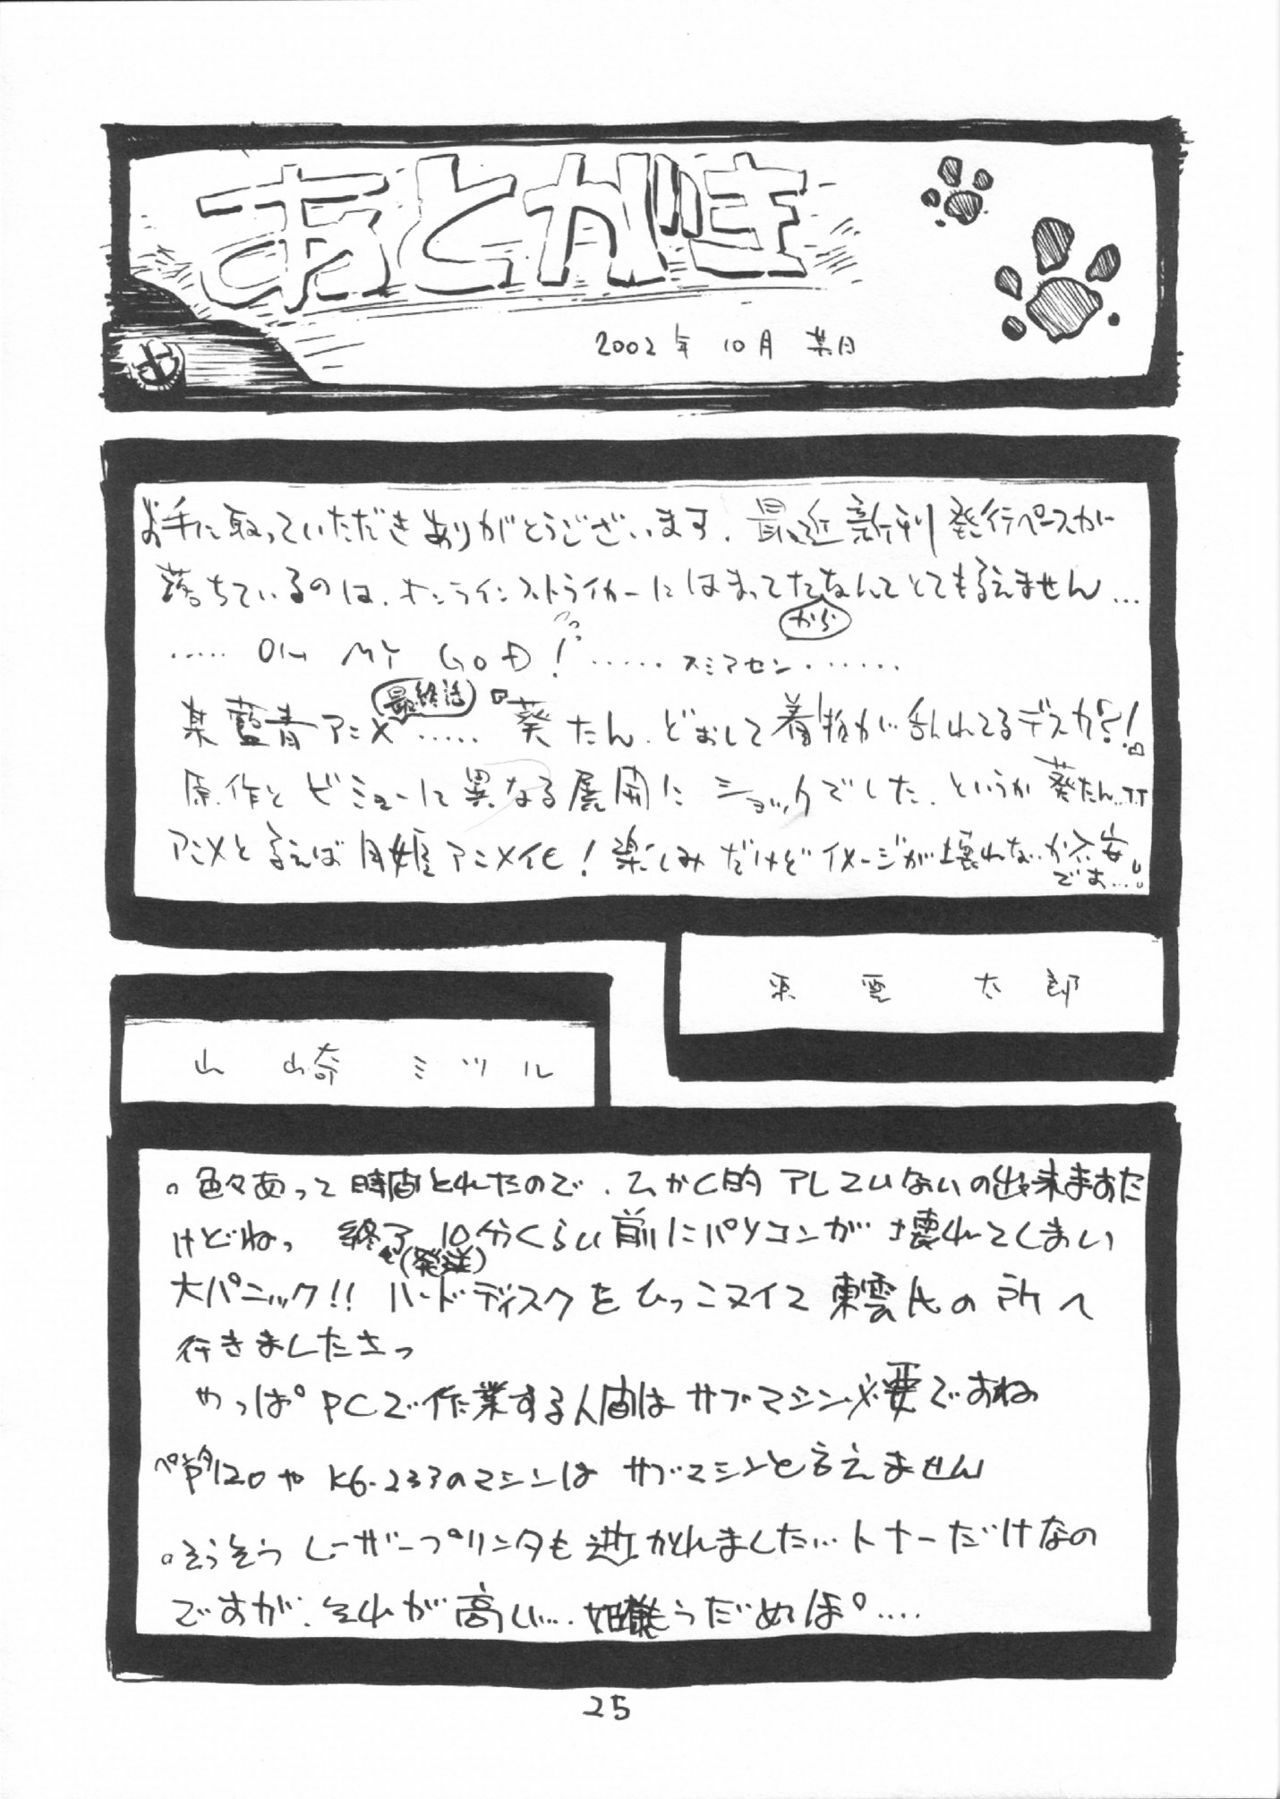 あとがき
2002年 10月 某日
お手に取っていただきありがとうございます。最近新刊発行ペースが
落ちているのは、オンラインストライカーにはまってたなんてとても言えません…
から
…‥ OH MY GOD! …‥‥スミマセン‥‥‥
最終話
某藍青アニメ‥‥‥『葵たん、どおして着物が乱れてるデスカ!?』
原作とビミョーに異なる展開にショックでした。というか葵たん…TT
アニメと言えば月姫アニメ化!楽しみだけどイメージが壊れないか不安
でお…
東雲太郎
山崎ミツル
。色々あって時間とれたので、てかC的アレしていないの出来ますた
けどねっ 終了10分くらい前にパソコンが壊れてしまい
(発送)
大パニック!! ハードディスクをひっこヌイて東雲氏の所へ
行きましたさっ
やっぱPCで作業する人間はサブマシン必要ですね
120やK6-233のマシンはサブマシンと言えません
。そうそうレーザープリンタも逝かれました…トナーだけなの
ですが、それが高い… もうだめぽ‥‥
25